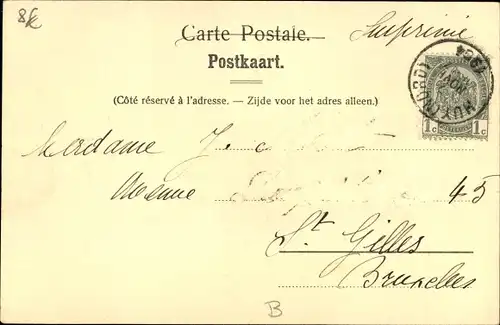 8k
Carte Postale.
Imprimé
Postkaart.
(Côté réservé à l'adresse. — Zijde voor het adres alleen.)
HUY (NORD)
1904
NOV
1c 1c
Madame
Avenue 45
St Gilles
Bruxelles
B